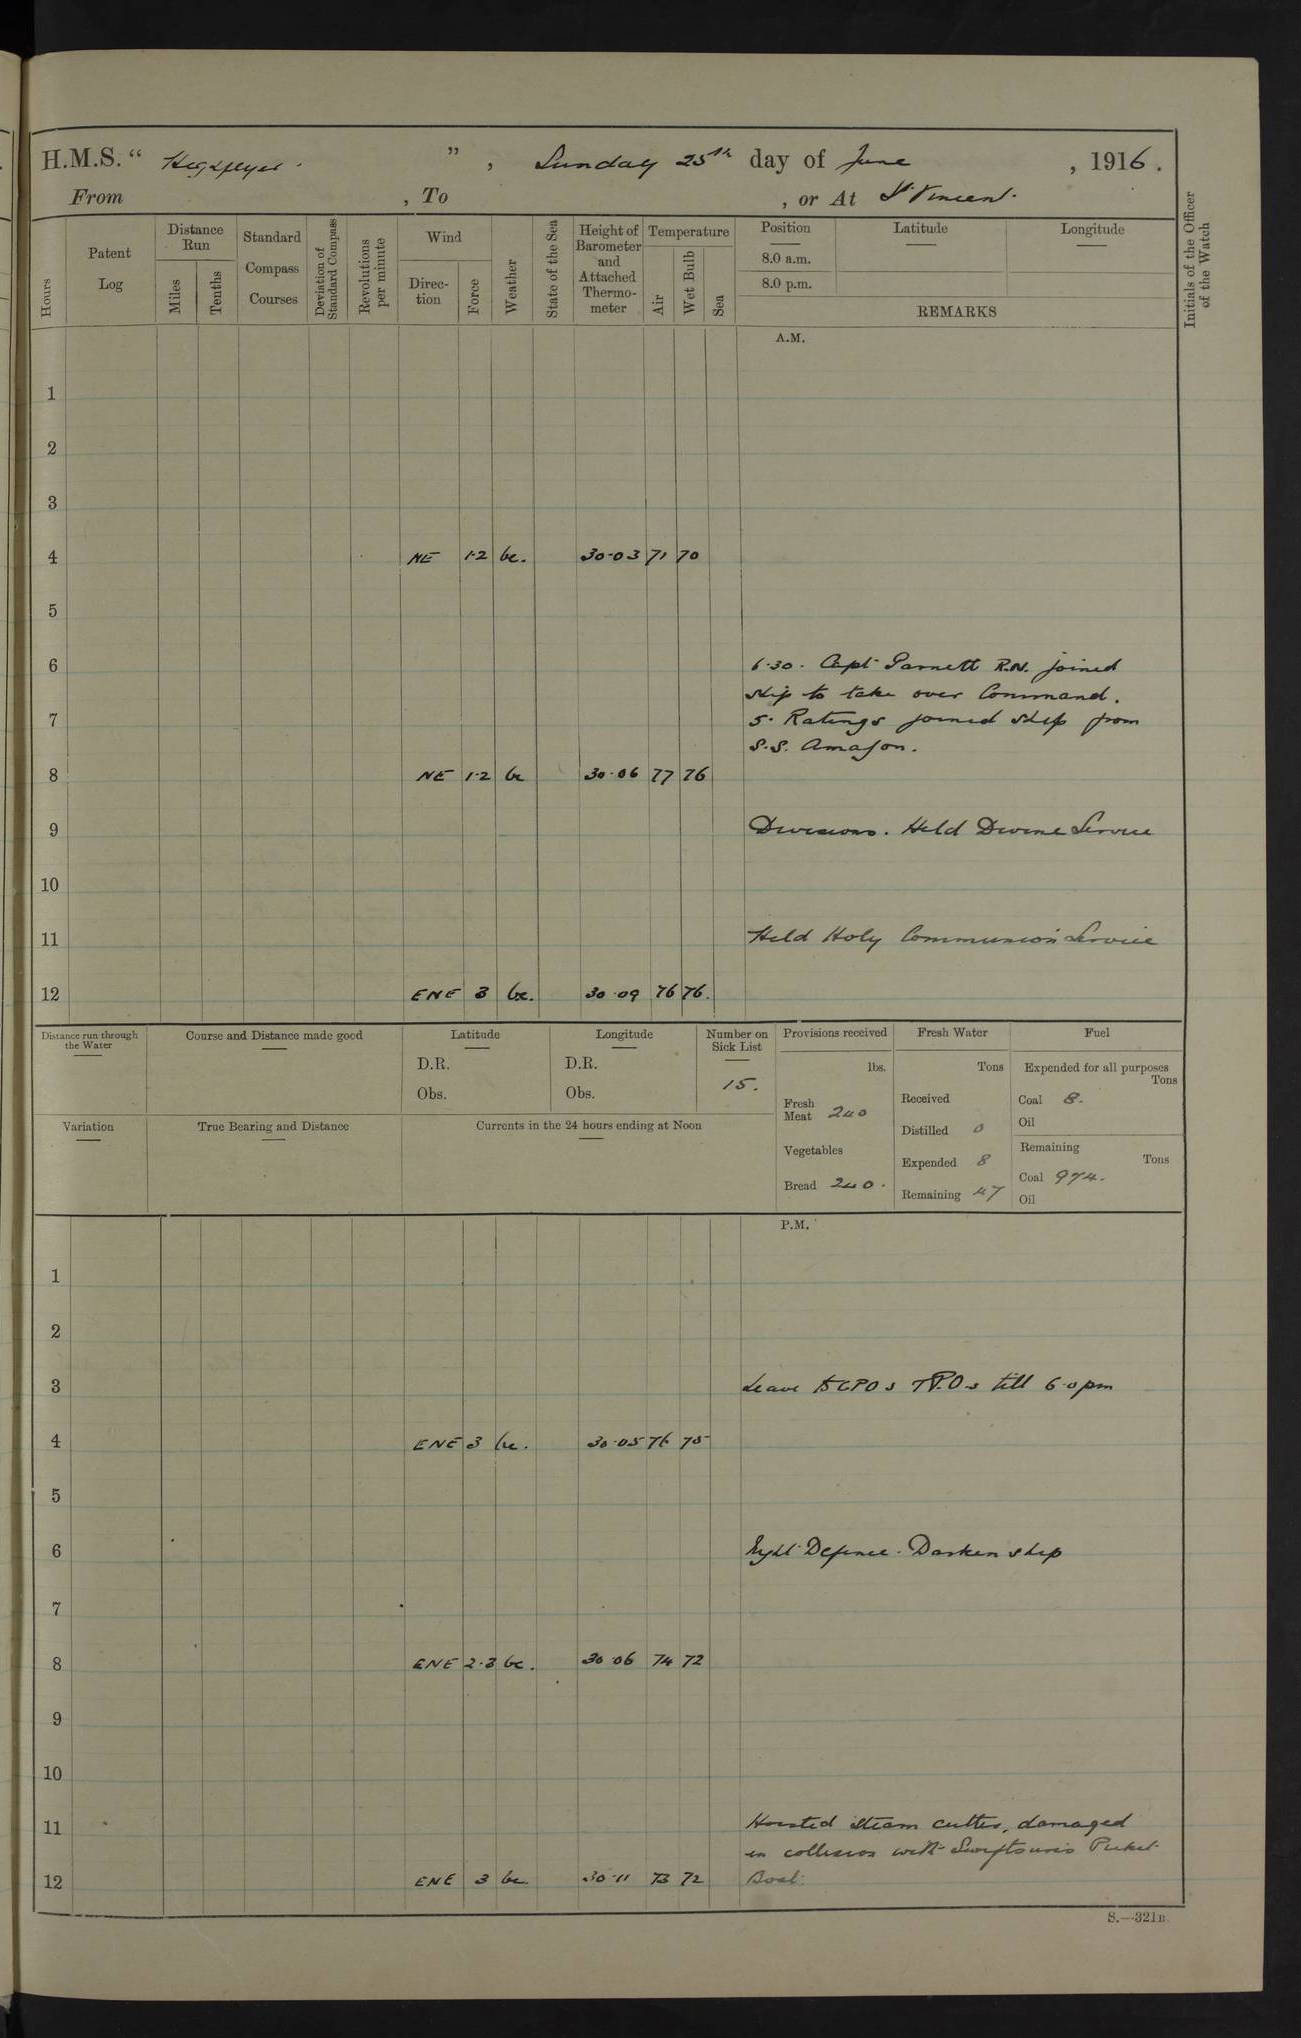 H.M.S. “ Highflyer. ” , Sunday 25th day of June , 1916.
From , To , or At St Vincent.
Hours
Patent Log
Distance Run
Miles
Tenths
Standard Compass Courses
Deviation of Standard Compass
Revolutions per minute
Wind
Direc-tion
Force
Weather
State of the Sea
Height of Barometer and Attached Thermo-meter
Temperature
Air
Wet Bulb
Sea
Position
8.0 a.m.
8.0 p.m.
Latitude
Longitude
REMARKS
Initials of the Officer of the Watch
A.M.
1
2
3
4 NE 1·2 bc. 30·03 71 70
5
6 6·30. Capt Garnett R.N. joined
ship to take over Command.
7 5. Ratings joined ship from
S.S. Amazon.
8 NE 1·2 bc 30·06 77 76
9 Divisions. Held Divine Service
10
11 Held Holy Communion Service
12 ENE 3 bc. 30·09 76 76.
Distance run through the Water
Course and Distance made good
Latitude
D.R.
Obs.
Longitude
D.R.
Obs.
Number on Sick List
15.
Provisions received
lbs.
Fresh Meat 240
Vegetables
Bread 240.
Fresh Water
Tons
Received
Distilled 0
Expended 8
Remaining 47
Fuel
Expended for all purposes
Tons
Coal 8.
Oil
Remaining
Tons
Coal 974.
Oil
Variation
True Bearing and Distance
Currents in the 24 hours ending at Noon
P.M.
1
2
3 Leave to CPOs & P.Os till 6.0pm
4 ENE 3 bc. 30·05 76 75
5
6 Night Defence. Darken ship
7
8 ENE 2·3 bc. 30·06 74 72
9
10
11 Hoisted steam cutter, damaged
in collision with Swiftsure's Picket
12 ENE 3 bc. 30·11 73 72 Boat.
S.—321B.